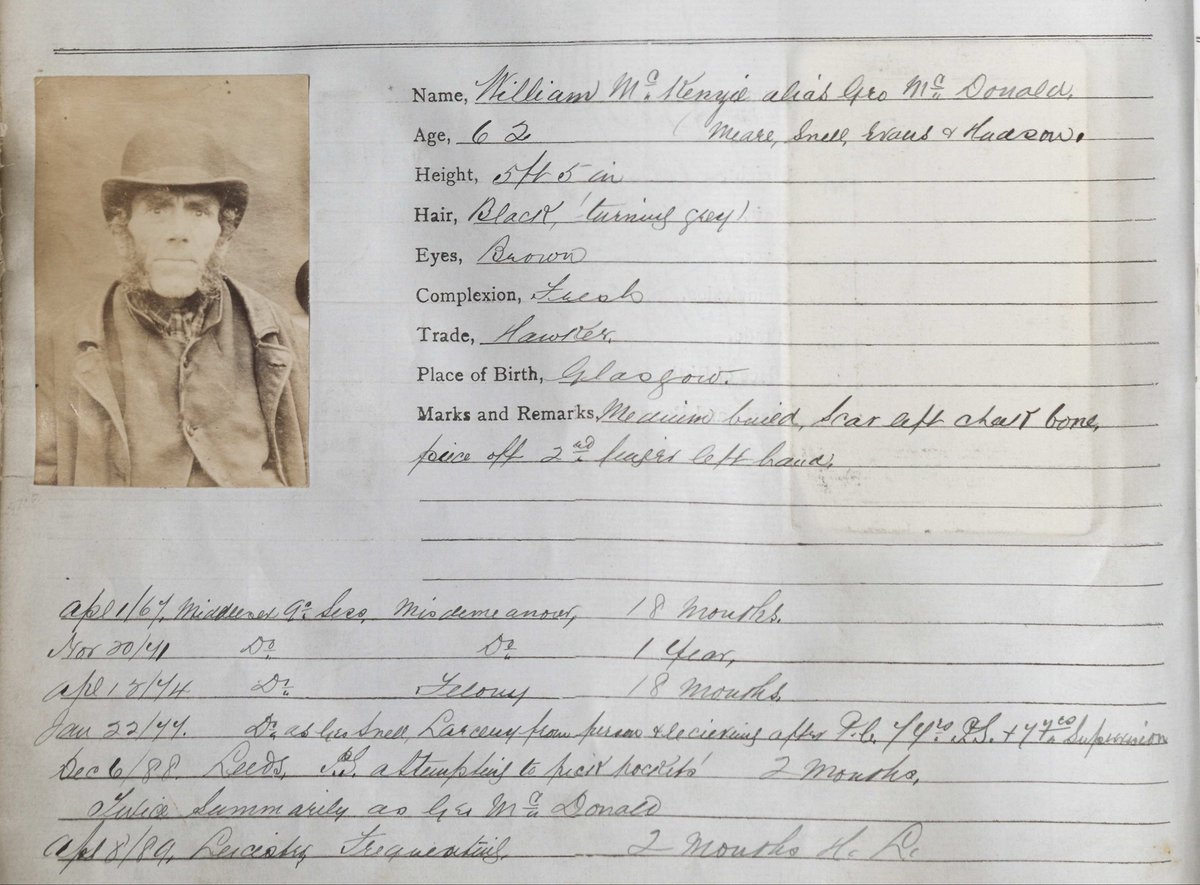 Name, William Mc Kenzie alias Geo Mc Donald.
Age, 62 Meare, Snell, Evans & Hudson.
Height, 5ft 5 in
Hair, Black, turning grey
Eyes, Brown
Complexion, Fresh
Trade, Hawker.
Place of Birth, Glasgow.
Marks and Remarks, Medium build, Scar left cheek bone,
piece off 2nd finger left hand.
Apl 1/67, Middlesex Qr Sess, Misdemeanour, 18 Months.
Nov 20/71 Do Do 1 Year,
Apl 13/74 Do Felony 18 Months.
Jan 22/77. Do as Geo Snell, Larceny from person & recieving after P.C. 7 yrs P.S. + 7 yrs Supervision
Dec 6/88. Leeds, attempting to pick pockets 2 Months.
Twice Summarily as Geo Mc Donald
Apl 8/89, Leicester, Frequenting, 2 Months H. L.